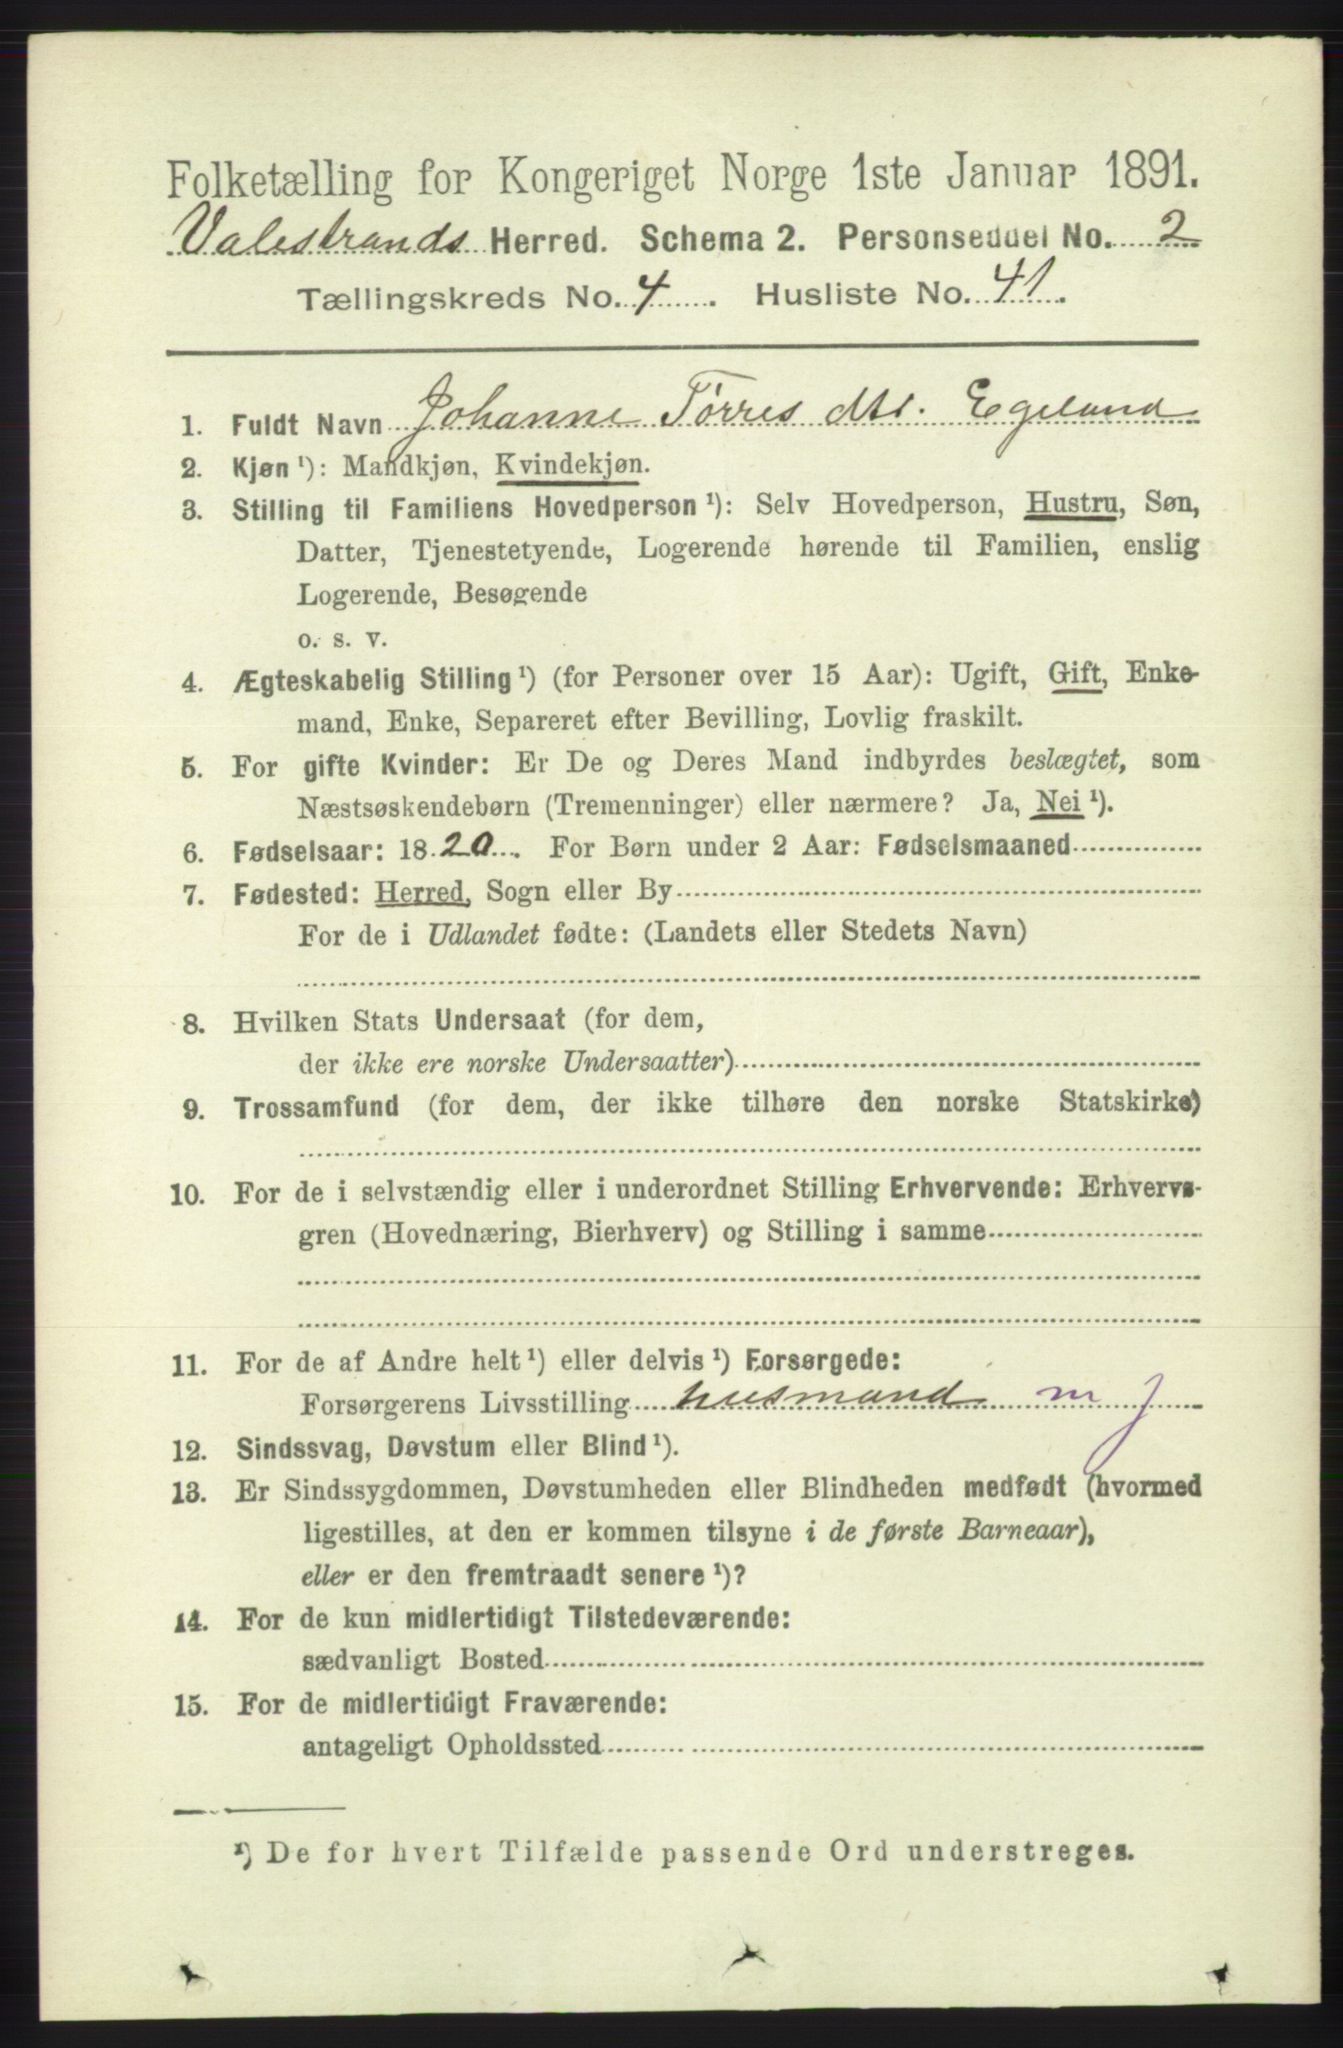 Folketælling for Kongeriget Norge 1ste Januar 1891.
Valestrands Herred. Schema 2. Personseddel No. 2
Tællingskreds No. 4. Husliste No. 41.
1. Fuldt Navn Johanne Tørres dtr. Egeland
2. Kjøn ¹): Mandkjøn, Kvindekjøn.
3. Stilling til Familiens Hovedperson ¹): Selv Hovedperson, Hustru, Søn,
Datter, Tjenestetyende, Logerende hørende til Familien, enslig
Logerende, Besøgende
o. s. v.
4. Ægteskabelig Stilling ¹) (for Personer over 15 Aar): Ugift, Gift, Enke-
mand, Enke, Separeret efter Bevilling, Lovlig fraskilt.
5. For gifte Kvinder: Er De og Deres Mand indbyrdes beslægtet, som
Næstsøskendebørn (Tremenninger) eller nærmere? Ja, Nei ¹).
6. Fødselsaar: 1820. For Børn under 2 Aar: Fødselsmaaned
7. Fødested: Herred, Sogn eller By
For de i Udlandet fødte: (Landets eller Stedets Navn)
8. Hvilken Stats Undersaat (for dem,
der ikke ere norske Undersaatter)
9. Trossamfund (for dem, der ikke tilhøre den norske Statskirke)
10. For de i selvstændig eller i underordnet Stilling Erhvervende: Erhvervs-
gren (Hovednæring, Bierhverv) og Stilling i samme
11. For de af Andre helt ¹) eller delvis ¹) Forsørgede:
Forsørgerens Livsstilling husmand m J
12. Sindssvag, Døvstum eller Blind ¹).
13. Er Sindssygdommen, Døvstumheden eller Blindheden medfødt (hvormed
ligestilles, at den er kommen tilsyne i de første Barneaar),
eller er den fremtraadt senere ¹)?
14. For de kun midlertidigt Tilstedeværende:
sædvanligt Bosted
15. For de midlertidigt Fraværende:
antageligt Opholdssted
¹) De for hvert Tilfælde passende Ord understreges.